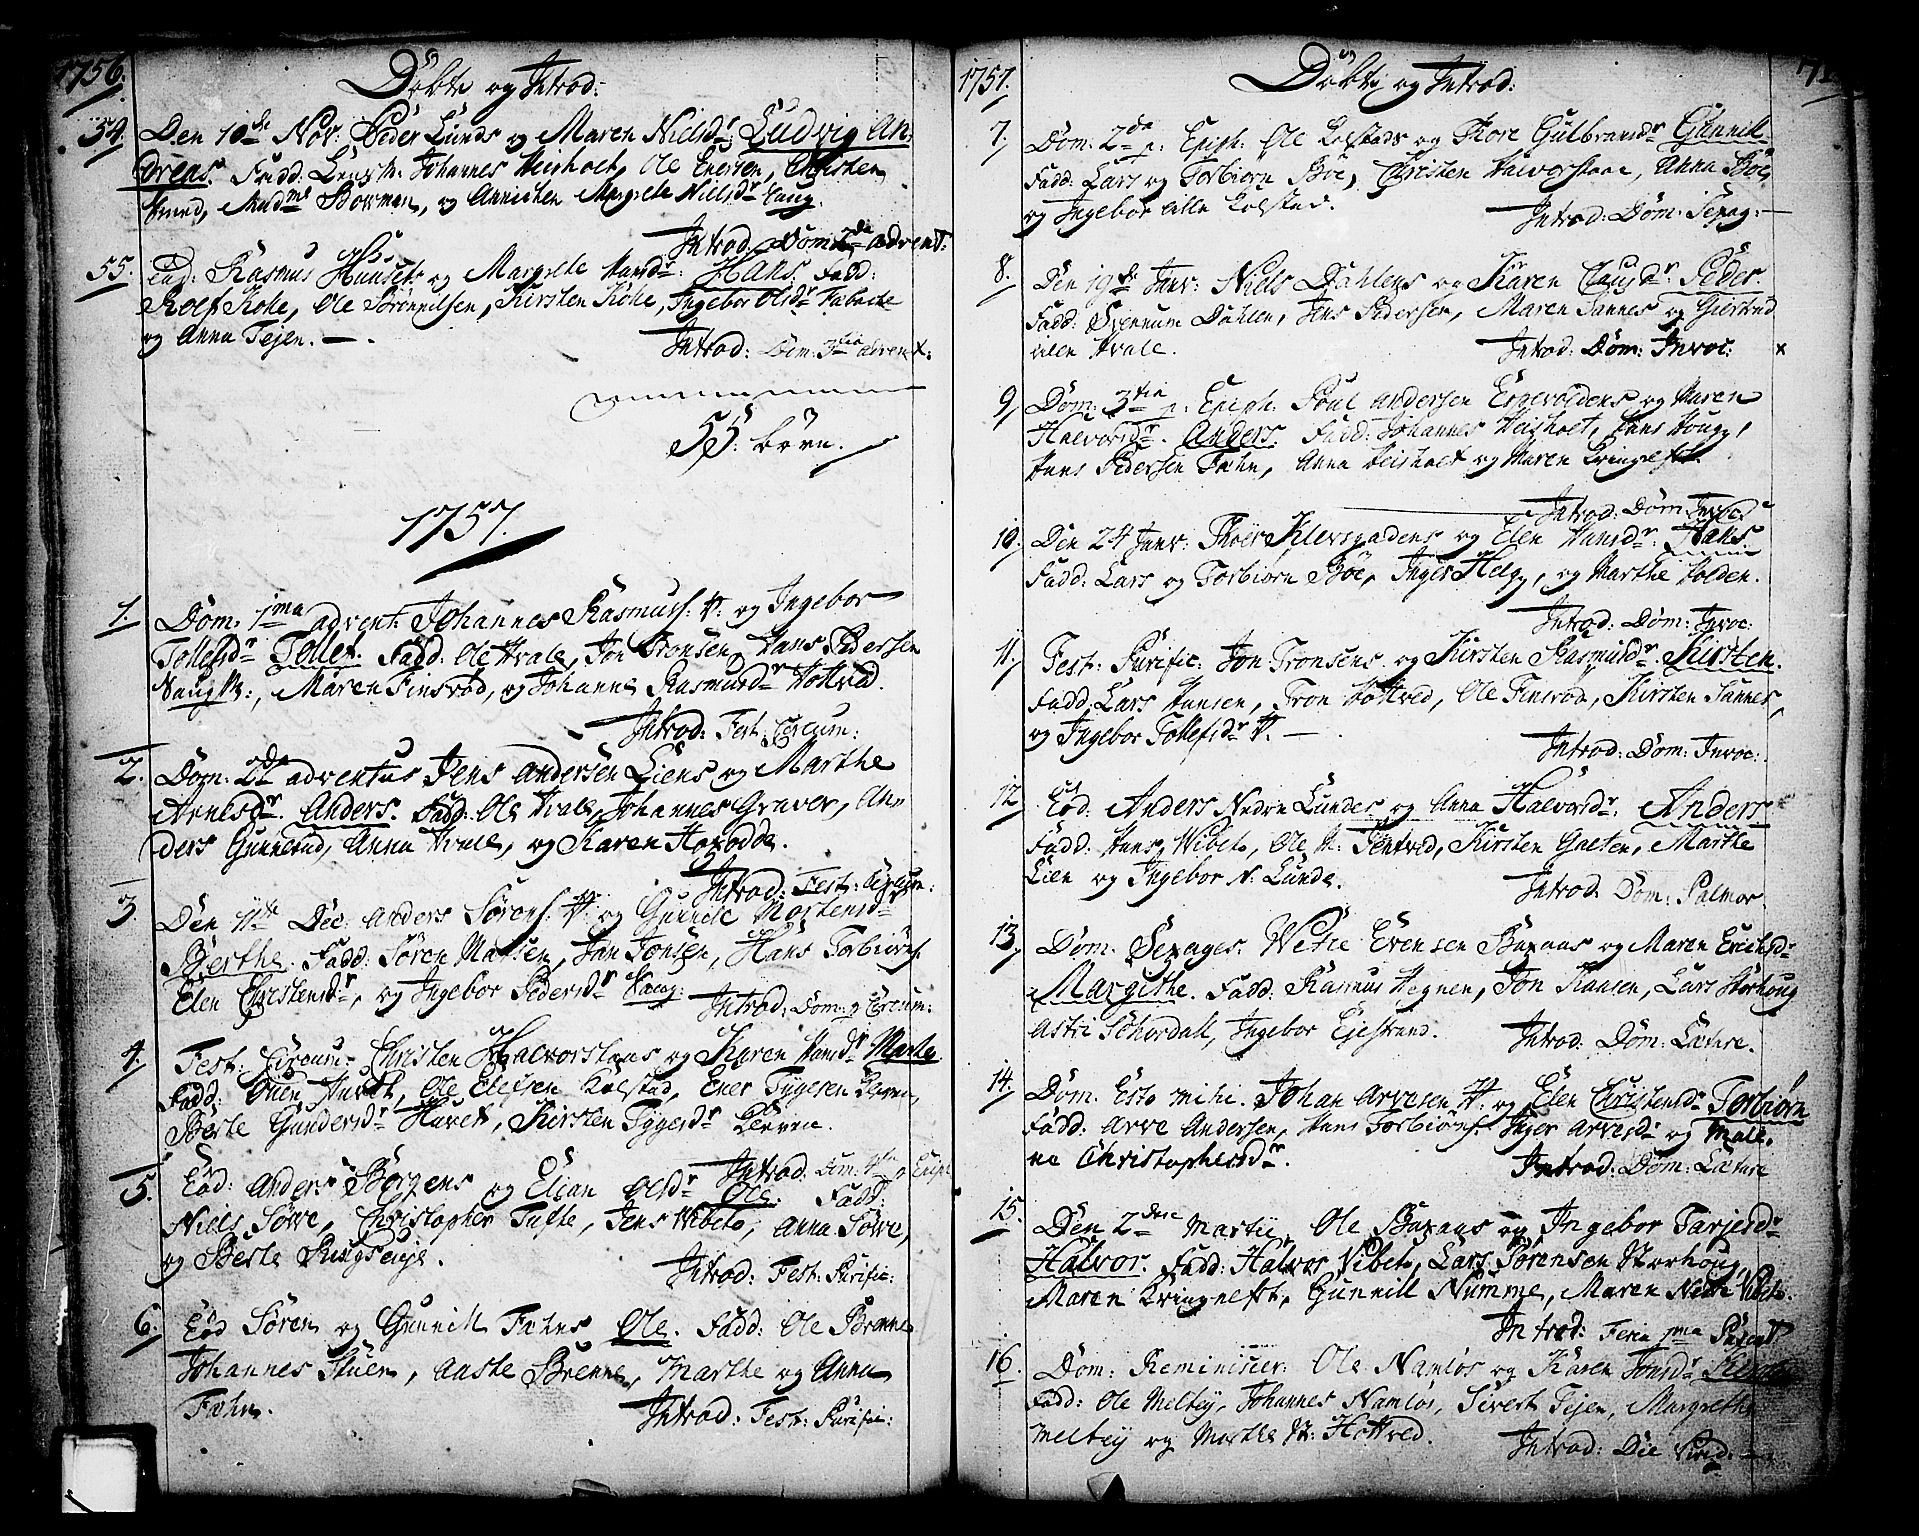 1756.
Döbte og Introd:
54. Den 10de Nov. Peder Lunds og Maren Nielsdr. Ludvig An-
dreas. Fadd: Johannes Heisholt, Ole Enersen, Christen
Madme Bowman, og Annichen Margrete Nielsdr Haug.
Introd: Dom: 2da advent.
55. Eod: Rasmus Hansens og Margrete Hansdr: Hans. Fadd:
Rolf Kohe, Ole, Kirsten Kohe, Ingebor Olsdr
og Anna Tejen. —.
Introd: Dom: 3tia advent:
55: börn.
1757.
1. Dom: 1ma advent: Johannes Rasmuss: H: og Ingebor
Tollefsdr Tollef. Fadd: Ole Hvale, Jon Tronsen, Hans Pedersen
Haug, Maren Finsrod, og Johanne Rasmusdr Hottved.
Introd: Fest: Circum:
2. Dom: 2da adventus Jens Andersen Liens og Marthe
Arnesdr. Anders. Fadd: Ole Hvale, Johannes Graver, An-
ders Gunnerud, Anna Hvale, og Karen Haxodde.
Introd: Fest: Circum:
3. Den 11te Dec: Anders Sörens: H: og Gunnele Mortensdr
Berthe. Fadd: Sören Madsen, Jan Jonsen, Hans Torbiörns:
Elen Christensdr, og Ingebor Pedersdr Haug:
Introd: Dom: p Circum:
4. Fest: Circum: Christen Halvorstaas og Karen Hansdr Marte
Fadd: Ole Elefsen Kolstad, Ener Tygesen
Berte Gundersdr Havet, Kirsten Tygesdr
Introd: Dom: 1ma p Epiph
5. Eod: Anders Börgens og Elian Olsdr Ole. Fadd:
Niels Söwe, Christopher Tufte, Jens Vibeto, Anna Söwe,
og Berte Rugseje.
Introd: Fest: Purific:
6. Eod Sören og Gunnill Fæhns Ole. Fadd: Ole Brenne
Johannes Stuen, Aaste Brenne, Marthe og Anna
Fæhn.
Introd: Fest: Purific:
1757.
Döbte og Introd:
7. Dom: 2da p: Epiph: Ole Kolstads og Thore Gulbransdr Gunnil-
Fadd: Lars og Torbiörn Böe, Christen Halvorstaae, Anna Böe
og Ingebor lille Kolstad.
Introd: Dom: Sexag: —
8. Den 19de Janr: Niels Dahlens og Karen Clausdr: Peder.
Fadd: Svennum Dahlen, Jens Pedersen, Maren Sannes og Giertrud
lille Hvale.
Introd: Dom: Invoc: x
9. Dom: 3tia p: Epiph: Poul Andersen og Maren
Halvorsdr. Anders. Fadd: Johannes Heisholt, Hans Houg,
Hans Pedersen Fæhn, Anna Heisholt og Maren Kringelfet.
Introd: Dom: Invoc.
10. Den 24 Janr: Thoer Klevsgadens og Elen Hansdr: Hans
Fadd: Lars og Torbiörn Böe, Inger Helg, og Marthe Holden.
Introd: Dom: Invoc:
11. Fest: Purific: Jon Tronsens og Kirsten Rasmusdr. Kirsten.
Fadd: Lars Hansen, Tron Hottved, Ole Finsrod, Kirsten Sannes,
og Ingebor Tollefsdr H. —.
Introd: Dom: Invoc:
12. Eod: Anders Nedre Lundes og Anna Halvorsdr. Anders
Fadd: Hans Vibeto, Ole H: Tentved, Kirsten Gaeten, Marthe
Lien og Ingebor N: Lunde.
Introd: Dom: Palmar
13. Dom: Sexages: Wetie Evensen Baxaas og Maren Erichsdr
Margithe. Fadd: Rasmus Hegnen, Jon Kaasen, Lars Storhoug
Astri Schordall, Ingebor Ejestrand.
Introd: Dom: Lætare.
14. Dom: Esto mihi. Johan Arvesen H: og Elen Christensdr Torbiörn
Fadd: Arve Andersen, Hans Torbiörns: Inger Arvesdr og Male-
ne Christophersdr.
Introd: Dom: Lætare
15. Den 2den Martii, Ole Baxaas og Ingebor Tarjesdr
Halvor. Fadd: Halvor Vibeto, Lars Sörensen Storhoug,
Maren Kringelfet, Gunnill Numme, Maren Nedre Vibeto.
Introd: Feria 1ma Pascat
16. Dom: Reminiscer: Ole Namlös og Karen Jonsdr
Fadd: Ole Meltej, Johannes Namlös, Sivert Tejen, Margrethe
Meltej og Marthe H: Hottved.
Introd: Die Virid: —